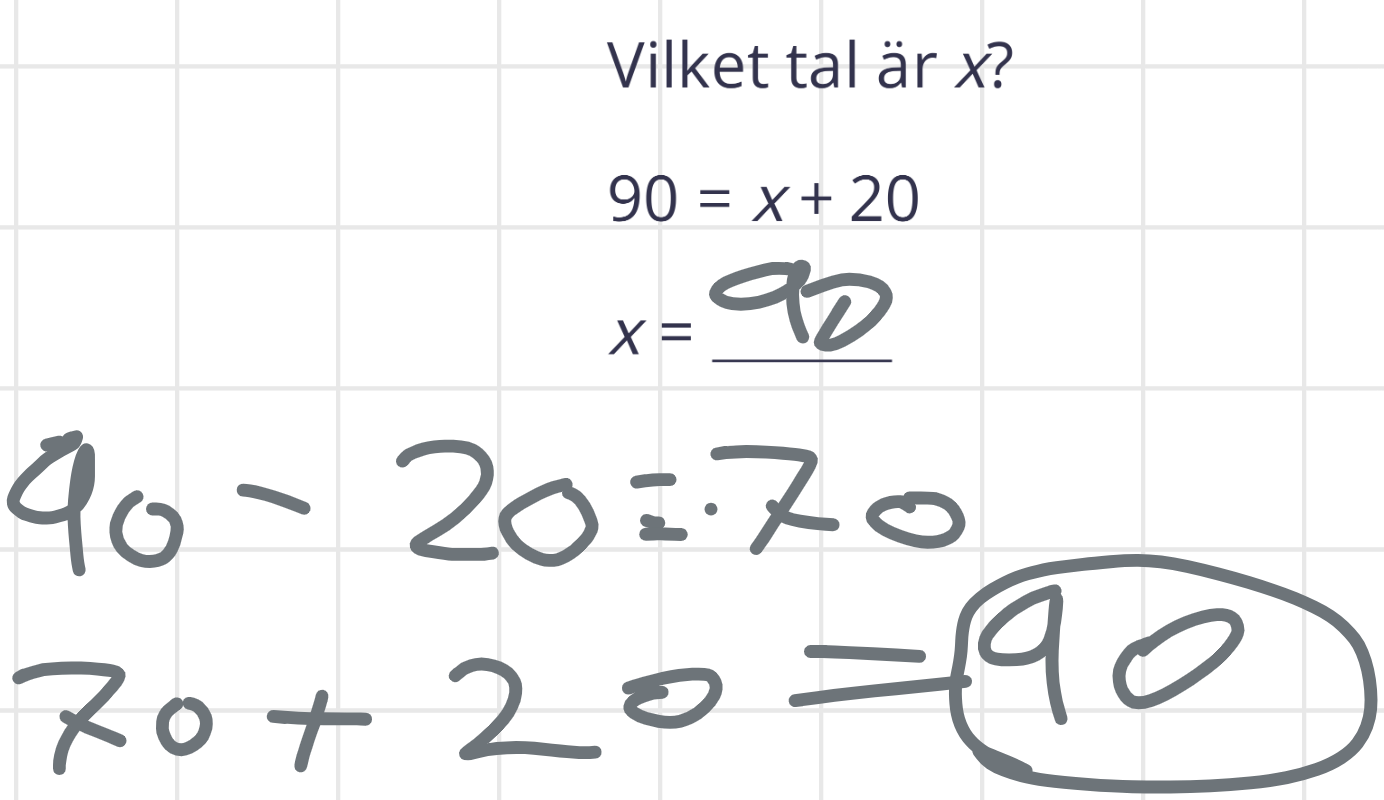 Vilket tal är x?
90 = x + 20
x = 90
90 - 20 = 70
70 + 20 = 90